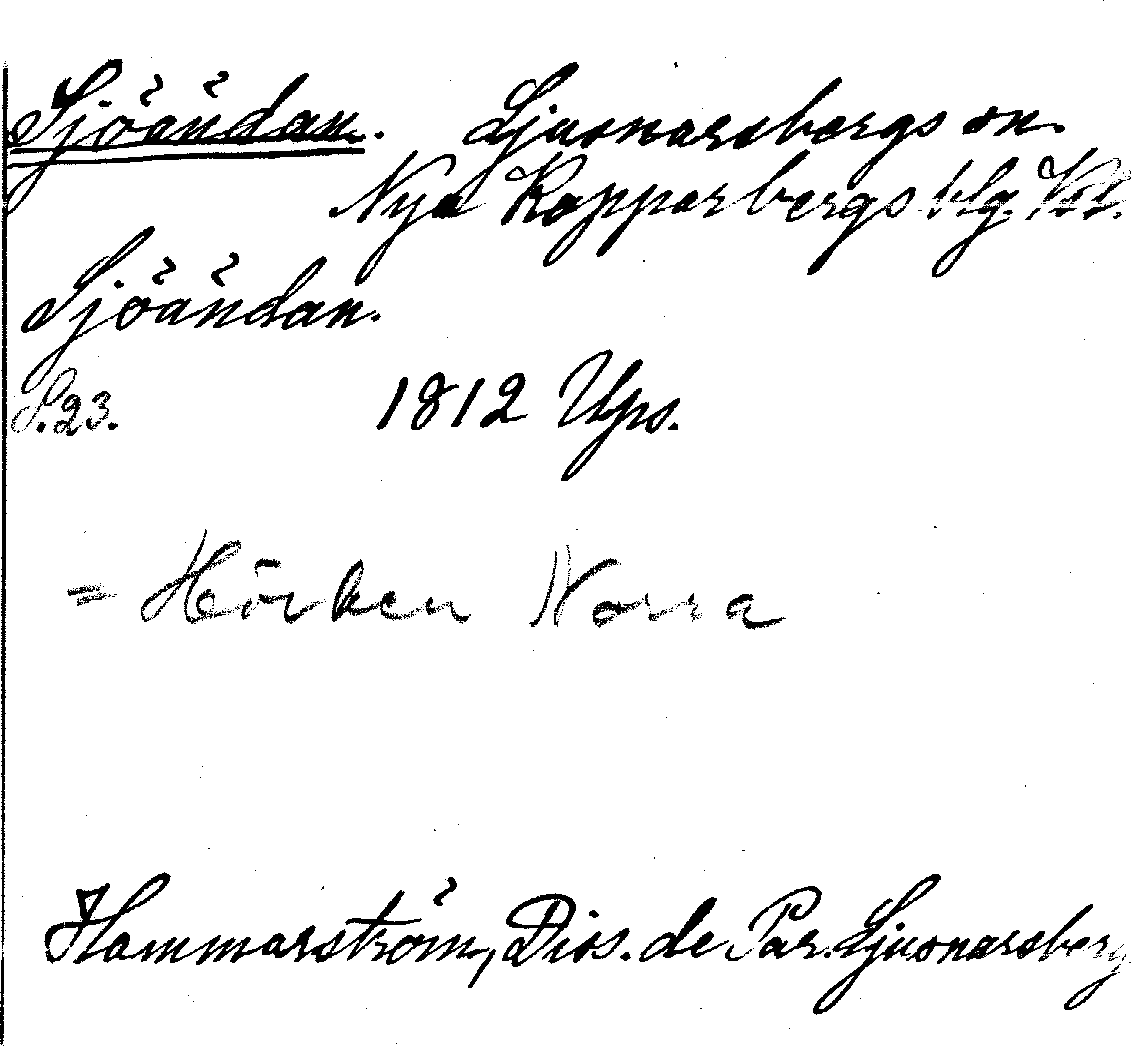 Sjöändan. Ljusnarsbergs sn.
Nya Kopparbergs blg. Vstm.
Sjöändan.
S. 23. 1812 Ups.
= Hörken Norra
Hammarström, Diss. de Par. Ljusnarsberg